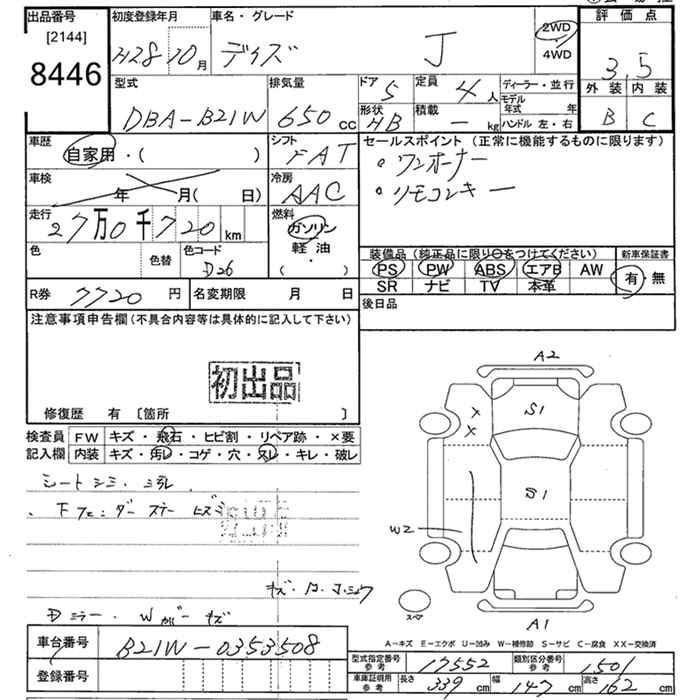 出品番号
[2144]
8446
初度登録年月
H28 10 月
車名・グレード
デイズ J
2WD
4WD
評価点
3.5
外装 内装
B C
型式
DBA-B21W
排気量
650 cc
ドア 5
定員 4 人
形状 HB
積載 - kg
ディーラー・並行
モデル年式 年
ハンドル 左・右
車歴
自家用・( )
シフト
FAT
セールスポイント(正常に機能するものに限ります)
・ワンオーナー
・リモコンキー
車検
年 月( 日)
冷房
AAC
走行
27万0千720 km
燃料
ガソリン
軽油
( )
色
色替
色コード
D26
装備品(純正品に限り○をつけてください)
PS PW ABS エアB AW
SR ナビ TV 本革
新車保証書
有・無
R券 7720 円
名変期限 月 日
後日品
注意事項申告欄(不具合内容等は具体的に記入して下さい)
初出品
修復歴 有 [箇所 ]
検査員
記入欄
FW キズ・飛石・ヒビ割・リペア跡・×要
内装 キズ・汚レ・コゲ・穴・スレ・キレ・破レ
シートシミ・
キズ・
Dミラー・ キズ
A2
S1
S1
W2
X
X
スペア
A1
A-キズ E-エクボ U-凹み W-補修跡 S-サビ C-腐食 XX-交換済
車台番号 B21W-0353508
登録番号
型式指定番号
参考
17552
類別区分番号
参考
1501
車庫証明用
参考
長さ 339 cm 幅 147 cm 高さ 162 cm